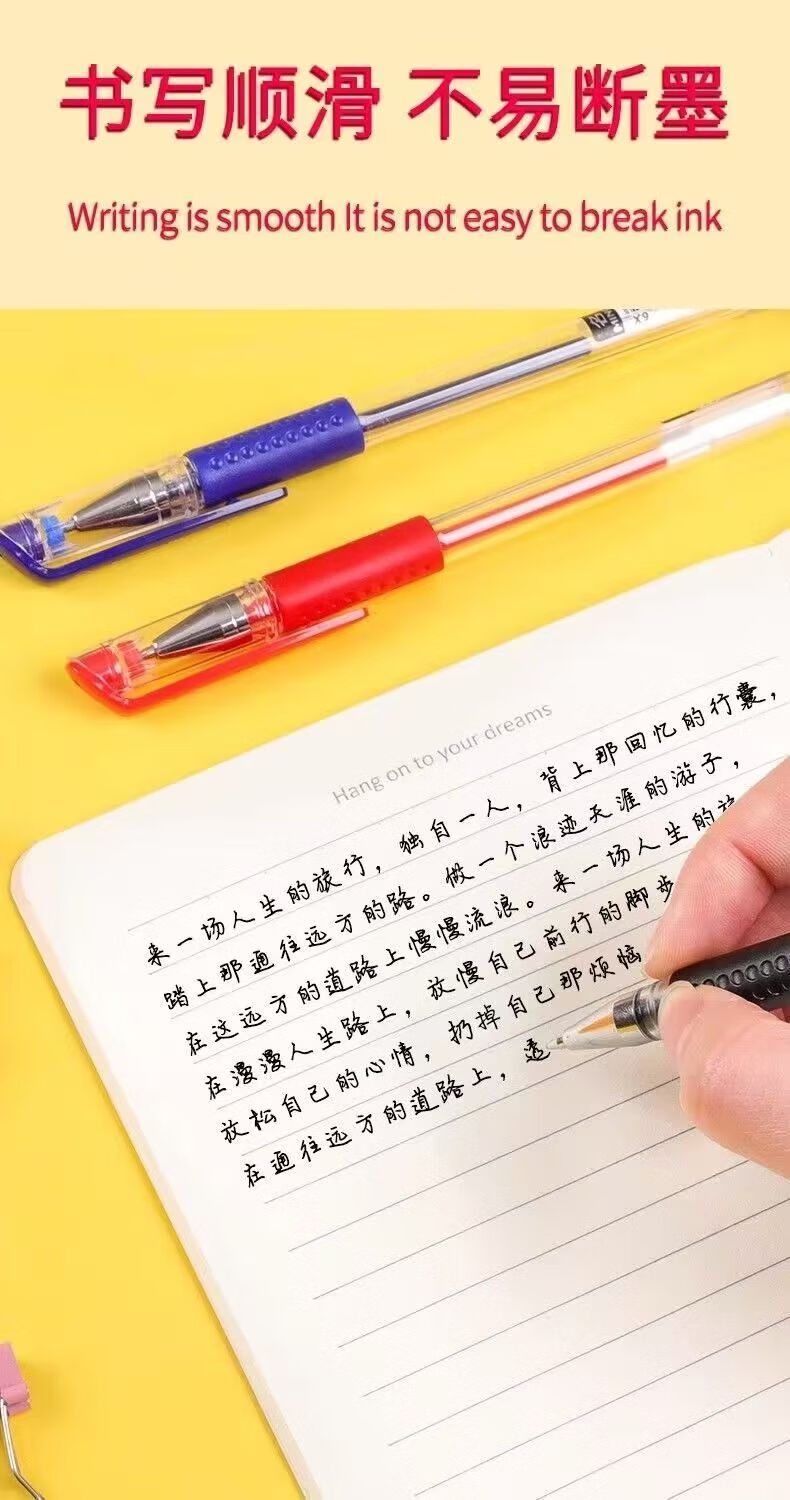 书写顺滑 不易断墨
Writing is smooth It is not easy to break ink
X9
Hang on to your dreams
来一场人生的旅行，独自一人，背上那回忆的行囊，
踏上那通往远方的路。做一个浪迹天涯的游子，
在这远方的道路上慢慢流浪。来一场人生的旅
在漫漫人生路上，放慢自己前行的脚步
放松自己的心情，扔掉自己那烦恼
在通往远方的道路上，透